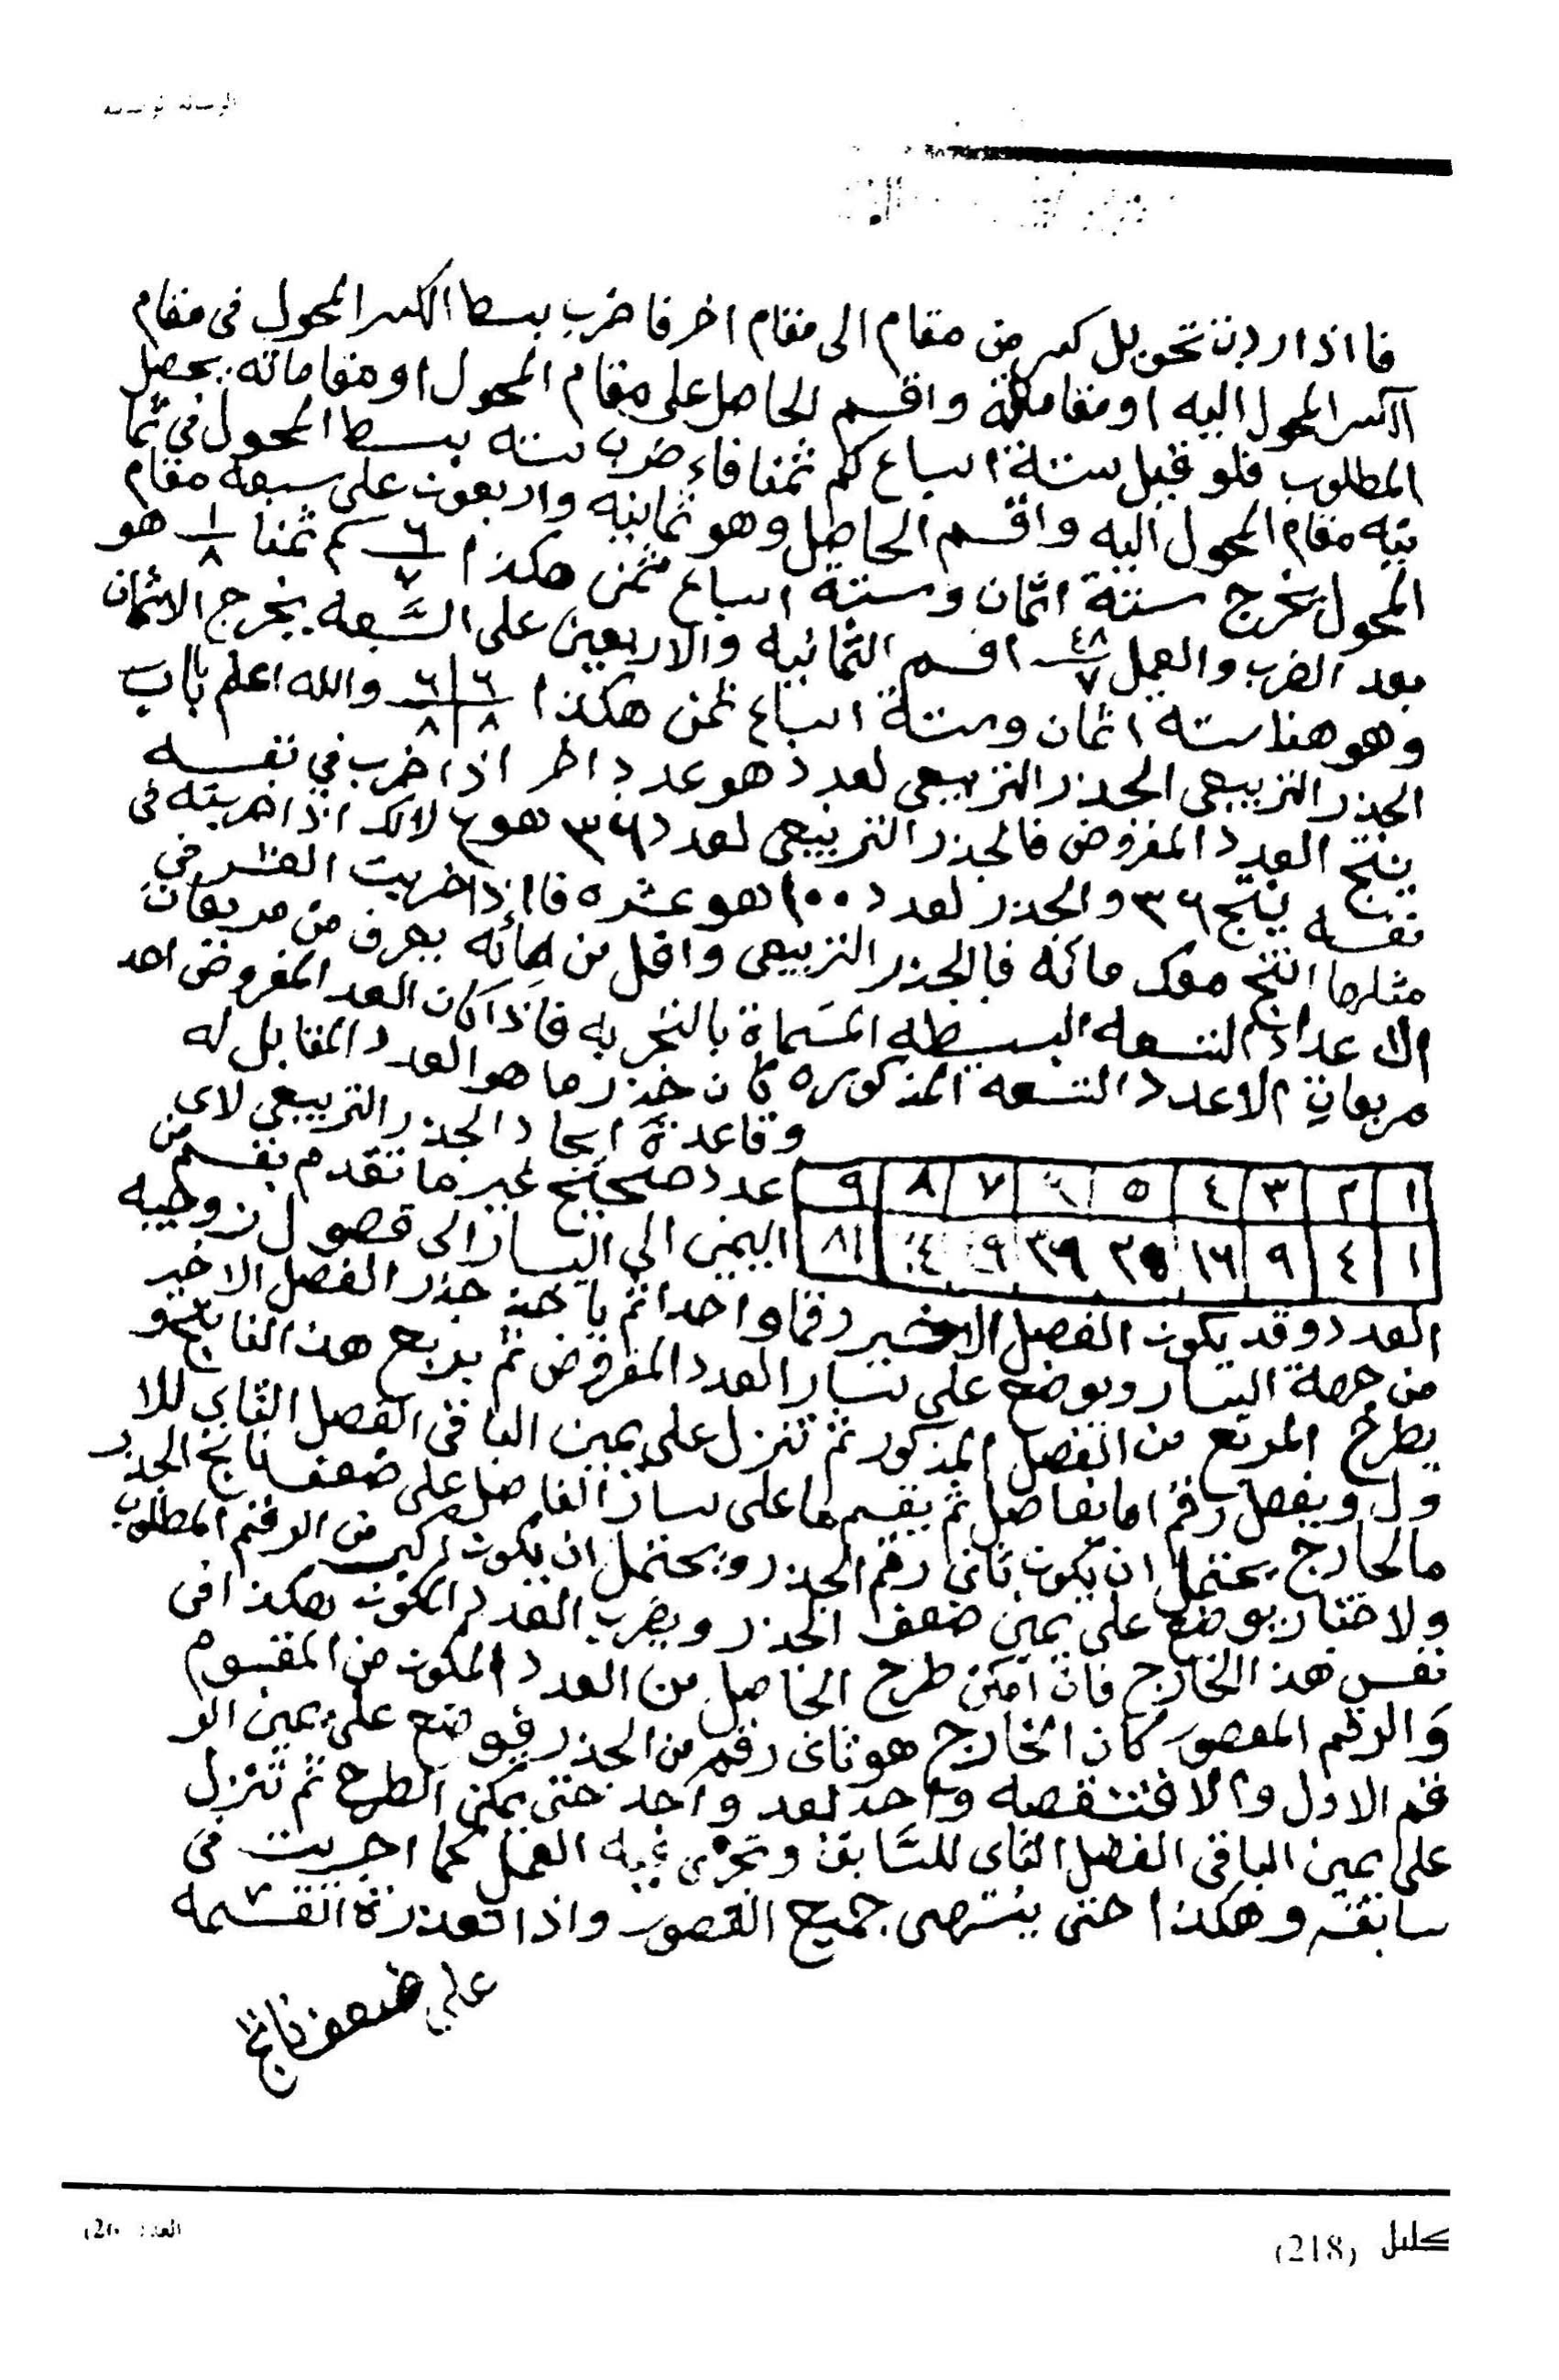 فااذا اردت تحويل كسر من مقام الى مقام اخر فاضرب بسط الكسر المحول فى مقام
الكسر المحول اليه او مقاماته واقسم الحاصل على مقام المحول او مقاماته يحصل
المطلوب فلو قيل ستة اسباع كم ثمنا فاء ضرب سته بسط المحول في ثما
نيه مقام المحول اليه واقسم الحاصل وهو ثمانيه واربعون على سبعه مقام
المحول يخرج ستة اثمان وستة اسباع ثمن هكذا ٦/٧ كم ثمنا ١/٨ هو
بعد الضرب والعمل ٤٨/٧ اقسم الثمانيه والاربعين على السبعه يخرج الاثمان
وهو هنا سته اثمان وستة اسباع ثمن هكذا ٦/٨ ٦/٨ والله اعلم باب
الجذر التربيعى الجذر التربيعى لعدد هو عدد اخر اذا ضرب في نفسه
ينتج العدد المفروض فالجذر التربيعى لعدد ٣٦ هو ٦ لانك اذا ضربته فى
نفسه ينتج ٣٦ والجذر لعدد ١٠٠ هو عشره فااذا ضربت العشر في
مثلها انتج معك مائه فالجذر التربيعى واقل من مائه يعرف من مربعات
الاعداد لتسعه البسيطه المسماة بالتجربه فاذا كان العدد المفروض احد
مربعات الاعدد التسعه المذكوره كان جذر ما هو العدد المقابل له
وقاعدة ايجاد الجذر التربيعى لاى
عدد صحيح غير ما تقدم يقسم من
١ ٢ ٣ ٤ ٥ ٦ ٧ ٨ ٩
اليمين الى اليسار الى فصول زوجيه
١ ٤ ٩ ١٦ ٢٥ ٣٦ ٩ ٤ ٨١
العدد وقد يكون الفصل الاخير رقما واحدا ثم يا خذ جذر الفصل الاخير
من جهة اليسار ويوضع على يسار العدد المفروض ثم يربع هذا الناتج و
يطرح المربع من الفصل المذكور ثم تنزل على يمين الباقى الفصل الثاني للا
ول ويفصل رقم اما بفاصل ثم يقسم ما على يسار الفاصل على ضعف ناتج الجذر
مالخارج يحتمل ان يكون ثاني رقم الجذر ويحتمل ان يكون اكبر من الرقم المطلوب
ولاختبار يوضع على يمين ضعف الجذر ويضرب العدد المكون هكذا فى
نفس هذا الخارج فان امكن طرح الحاصل من العدد المكون من المقسوم
والرقم المفصور كان الخارج هو ثانى رقم من الجذر فيوضع على يمين الر
قم الاول والا فتنقصه واحد بعد واحد حتى يمكن الطرح ثم تنزل
على يمين الباقى الفصل الثانى للسابق وتجرى فيه العمل كما اجريت فى
سابقه وهكذا حتى ينتهى جميع الفصور واذا تعذرة القسمه
على ضعف ناتج
كليل (218)
العدد (26)